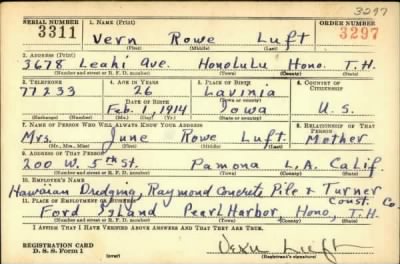 3297
SERIAL NUMBER 1. NAME (Print) ORDER NUMBER
3311 Vern Rowe Luft 3297
(First) (Middle) (Last)
2. ADDRESS (Print)
3678 Leahi Ave. Honolulu Hono. T.H.
(Number and street or R. F. D. number) (Town) (County) (State)
3. TELEPHONE 4. AGE IN YEARS 5. PLACE OF BIRTH 6. COUNTRY OF CITIZENSHIP
77233 26 Lavinia
DATE OF BIRTH (Town or county)
Feb. 1, 1914 Iowa U. S.
(Exchange) (Number) (Mo.) (Day) (Yr.) (State or country)
7. NAME OF PERSON WHO WILL ALWAYS KNOW YOUR ADDRESS 8. RELATIONSHIP OF THAT PERSON
Mrs. June Rowe Luft Mother
(Mr., Mrs., Miss) (First) (Middle) (Last)
9. ADDRESS OF THAT PERSON
200 W. 5th St. Pamona L.A. Calif.
(Number and street or R. F. D. number) (Town) (County) (State)
10. EMPLOYER'S NAME
Hawaiian Dredging, Raymond Concrete Pile & Turner Const. Co.
11. PLACE OF EMPLOYMENT OR BUSINESS
Ford Island Pearl Harbor, Hono, T.H.
(Number and street or R. F. D. number) (Town) (County) (State)
I AFFIRM THAT I HAVE VERIFIED ABOVE ANSWERS AND THAT THEY ARE TRUE.
REGISTRATION CARD
D. S. S. Form 1 (over) Vern Luft
(Registrant's signature)